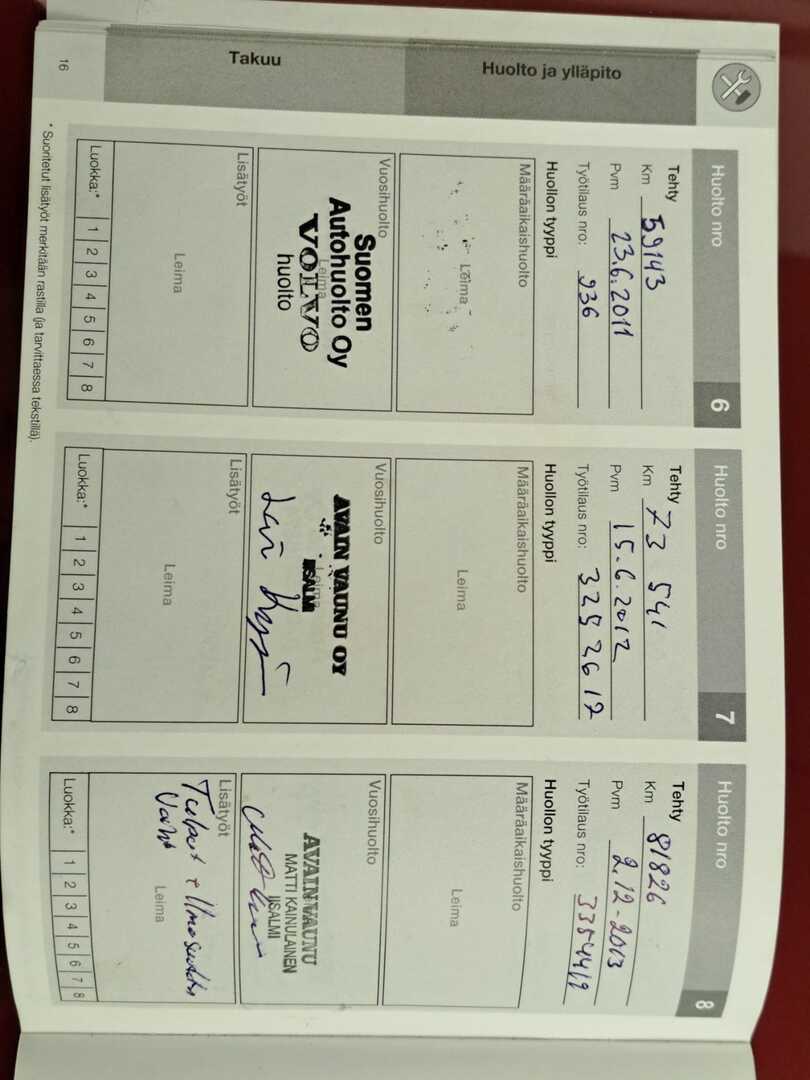 Takuu
Huolto ja ylläpito
Huolto nro 6
Tehty
Km 59143
Pvm 23.6.2011
Työtilaus nro: 936
Huollon tyyppi
Määräaikaishuolto
Leima
Vuosihuolto
Suomen
Autohuolto Oy
Leima
VOLVO
huolto
Lisätyöt
Leima
Luokka:* 1 2 3 4 5 6 7 8
Huolto nro 7
Tehty
Km 73 541
Pvm 15.6.2012
Työtilaus nro: 3252617
Huollon tyyppi
Määräaikaishuolto
Leima
Vuosihuolto
AVAIN VAUNU OY
Leima
IISALMI
Lisätyöt
Leima
Luokka:* 1 2 3 4 5 6 7 8
Huolto nro 8
Tehty
Km 81826
Pvm 2.12-2013
Työtilaus nro:
Huollon tyyppi
Määräaikaishuolto
Leima
Vuosihuolto
AVAINVAUNU
MATTI KAINULAINEN
IISALMI
Lisätyöt
Leima
Luokka:* 1 2 3 4 5 6 7 8
* Suoritetut lisätyöt merkitään rastilla (ja tarvittaessa tekstillä).
16